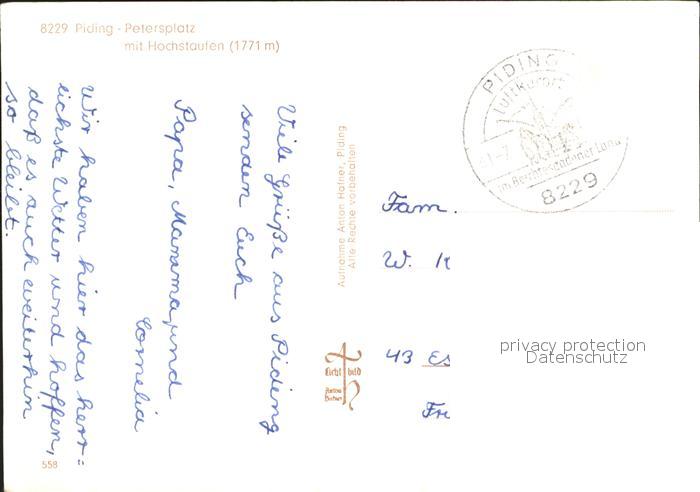 8229 Piding - Petersplatz
mit Hochstaufen (1771 m)
Viele Grüße aus Piding
senden Euch
Papa, Mamma und
Cornelia
Wir haben hier das herr=
lichste Wetter und hoffen,
daß es auch weiterhin
so bleibt.
558
Aufnahme Anton Hafner, Piding
Alle Rechte vorbehalten
Licht bild
PIDING
Luftkurort
im Berchtesgadener Land
8229
Fam.
W. K
43 Es
Fr
privacy protection
Datenschutz